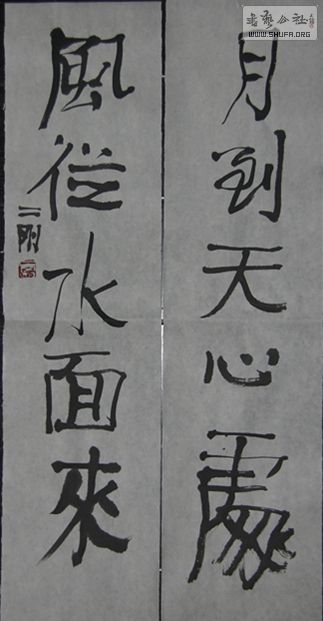 月到天心處
風從水面來
二剛
書藝公社
WWW.SHUFA.ORG